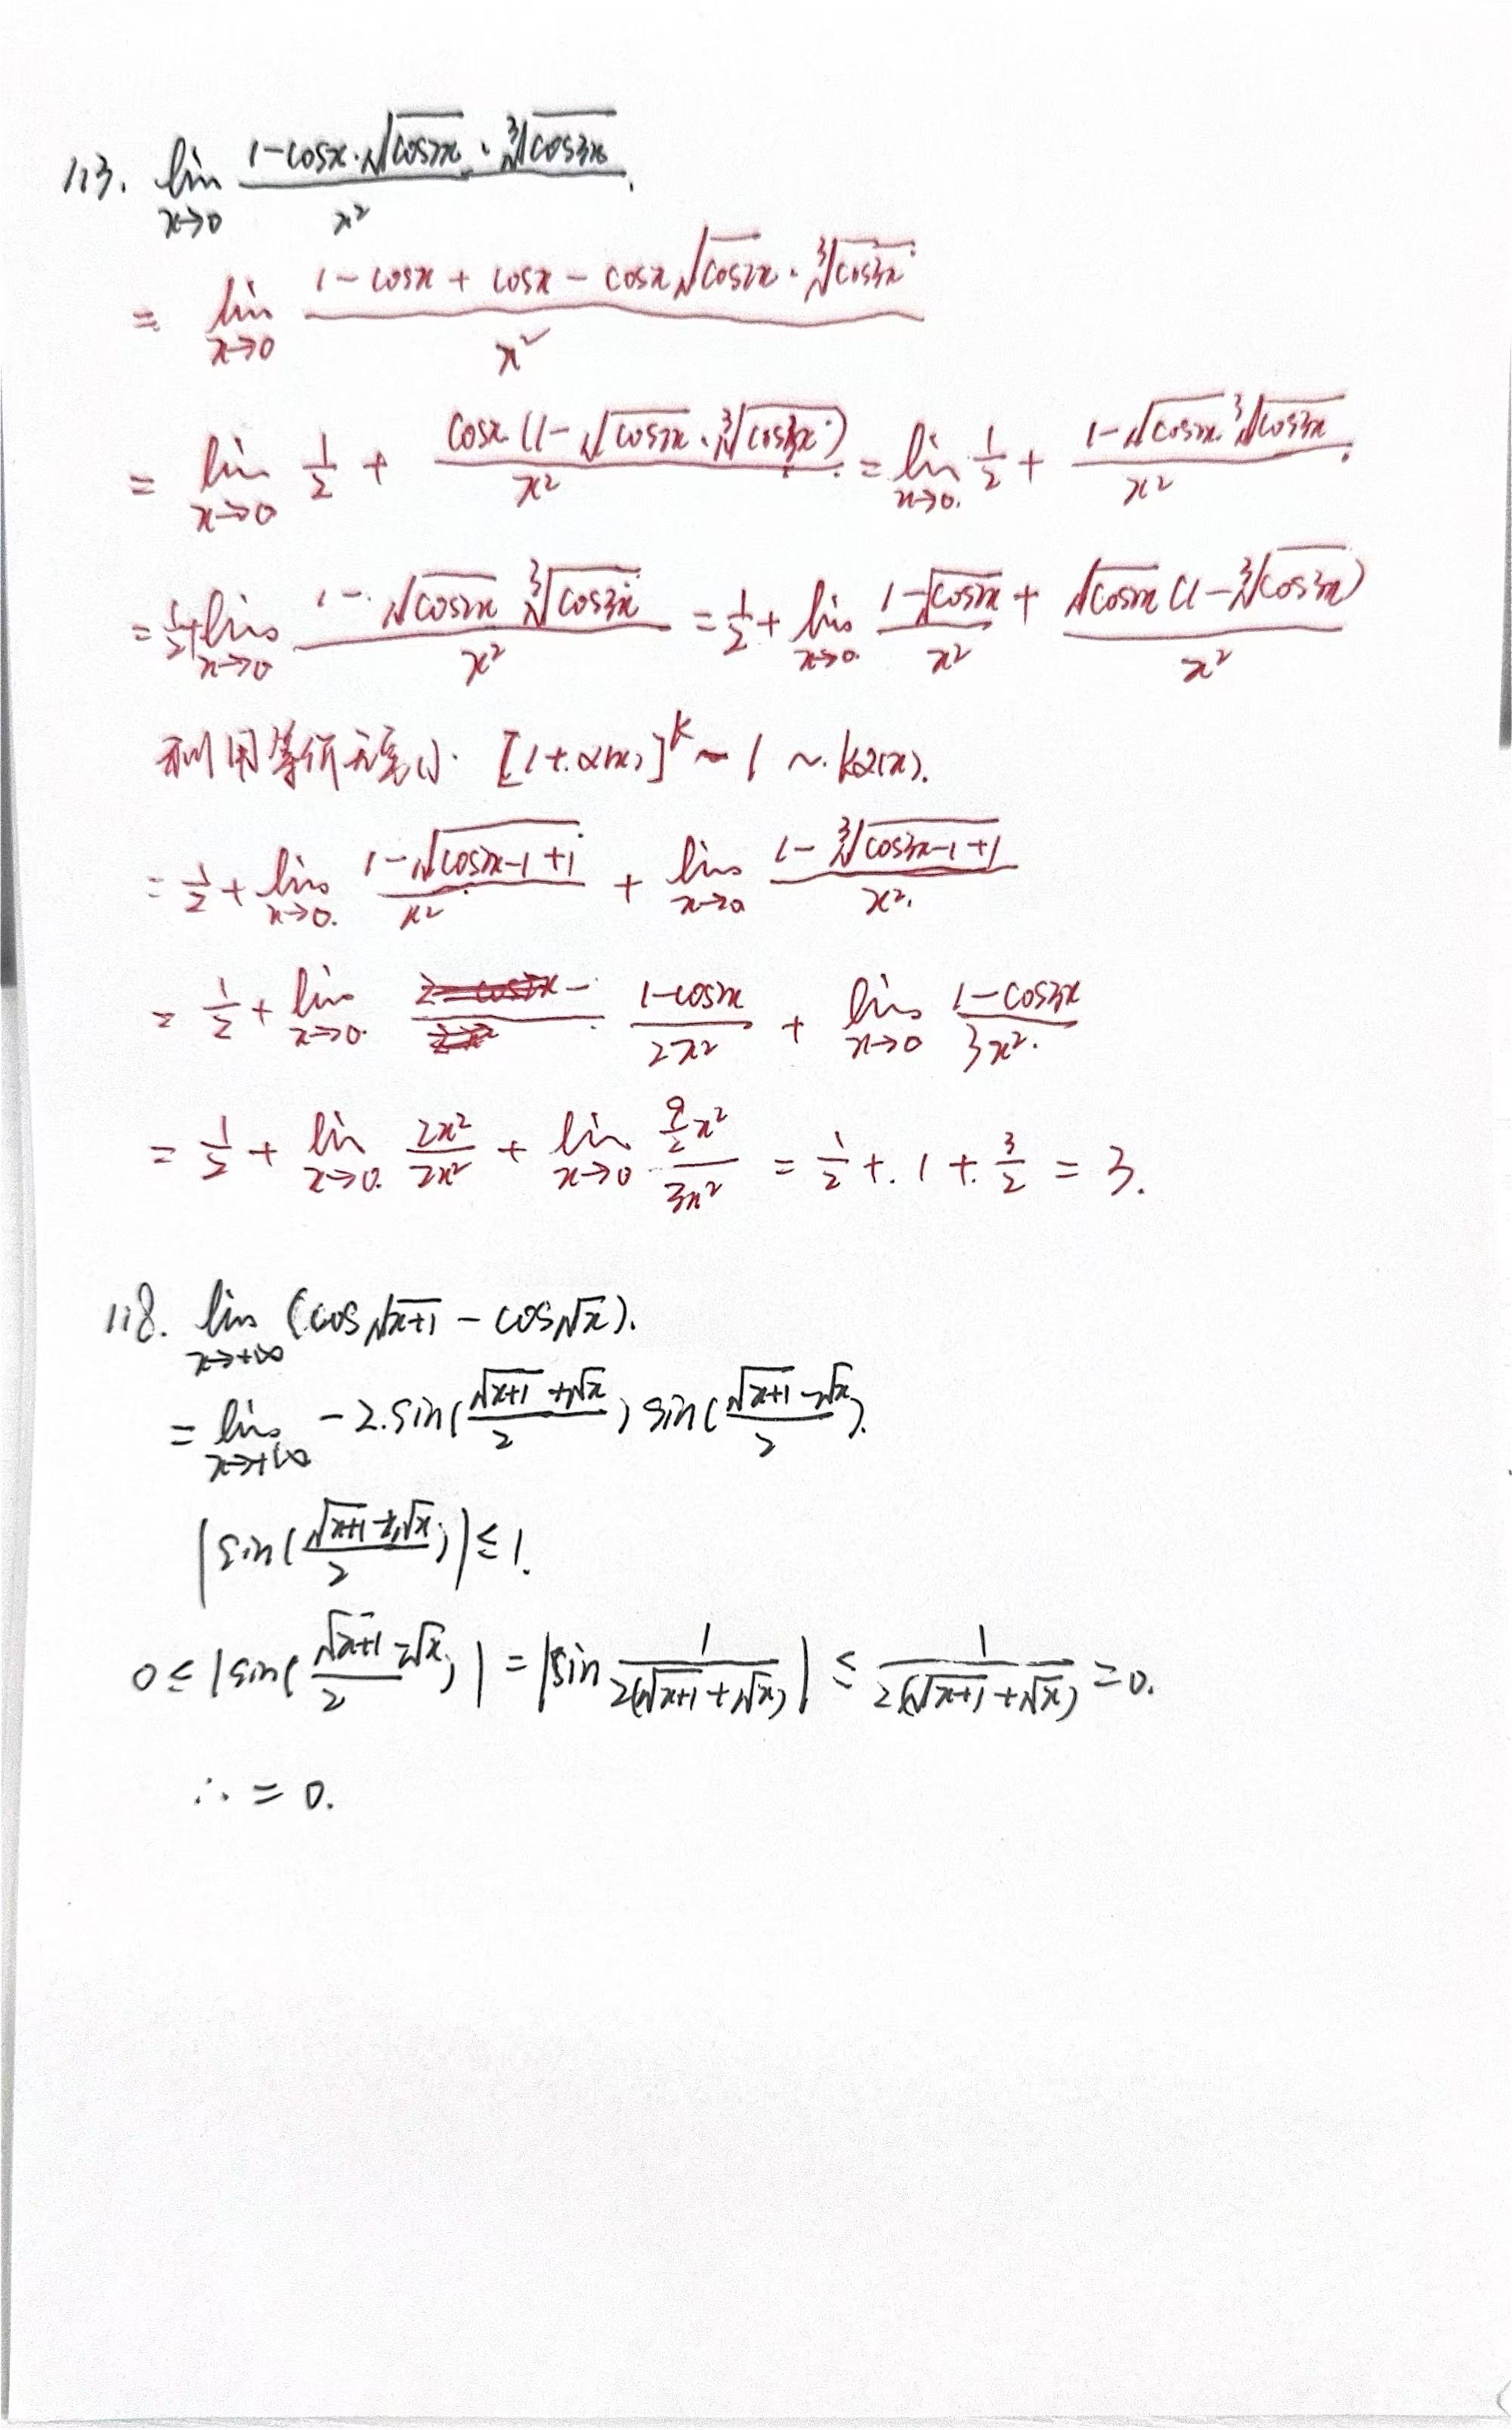 113. lim_{x→0} (1-cosx·√(cos2x)·∛(cos3x))/x²
= lim_{x→0} (1-cosx+cosx-cosx√(cos2x)·∛(cos3x))/x²
= lim_{x→0} 1/2 + cosx(1-√(cos2x)·∛(cos3x))/x² = lim_{x→0} 1/2 + (1-√(cos2x)∛(cos3x))/x²
= 1/2+lim_{x→0} (1-√(cos2x)∛(cos3x))/x² = 1/2+lim_{x→0} (1-√(cos2x))/x² + √(cos2x)(1-∛(cos3x))/x²
利用等价无穷小. [1+α(x)]^k-1 ~ kα(x).
= 1/2+lim_{x→0} (1-√(cos2x-1+1))/x² + lim_{x→0} (1-∛(cos3x-1+1))/x²
= 1/2+lim_{x→0} (1-cos2x)/2x² + lim_{x→0} (1-cos3x)/3x²
= 1/2+lim_{x→0} 2x²/2x² + lim_{x→0} (9/2 x²)/3x² = 1/2+1+3/2 = 3.
118. lim_{x→+∞} (cos√(x+1)-cos√x).
= lim_{x→+∞} -2·sin((√(x+1)+√x)/2) sin((√(x+1)-√x)/2).
|sin((√(x+1)+√x)/2)| ≤ 1.
0 ≤ |sin((√(x+1)-√x)/2)| = |sin 1/(2(√(x+1)+√x))| ≤ 1/(2(√(x+1)+√x)) = 0.
∴ = 0.